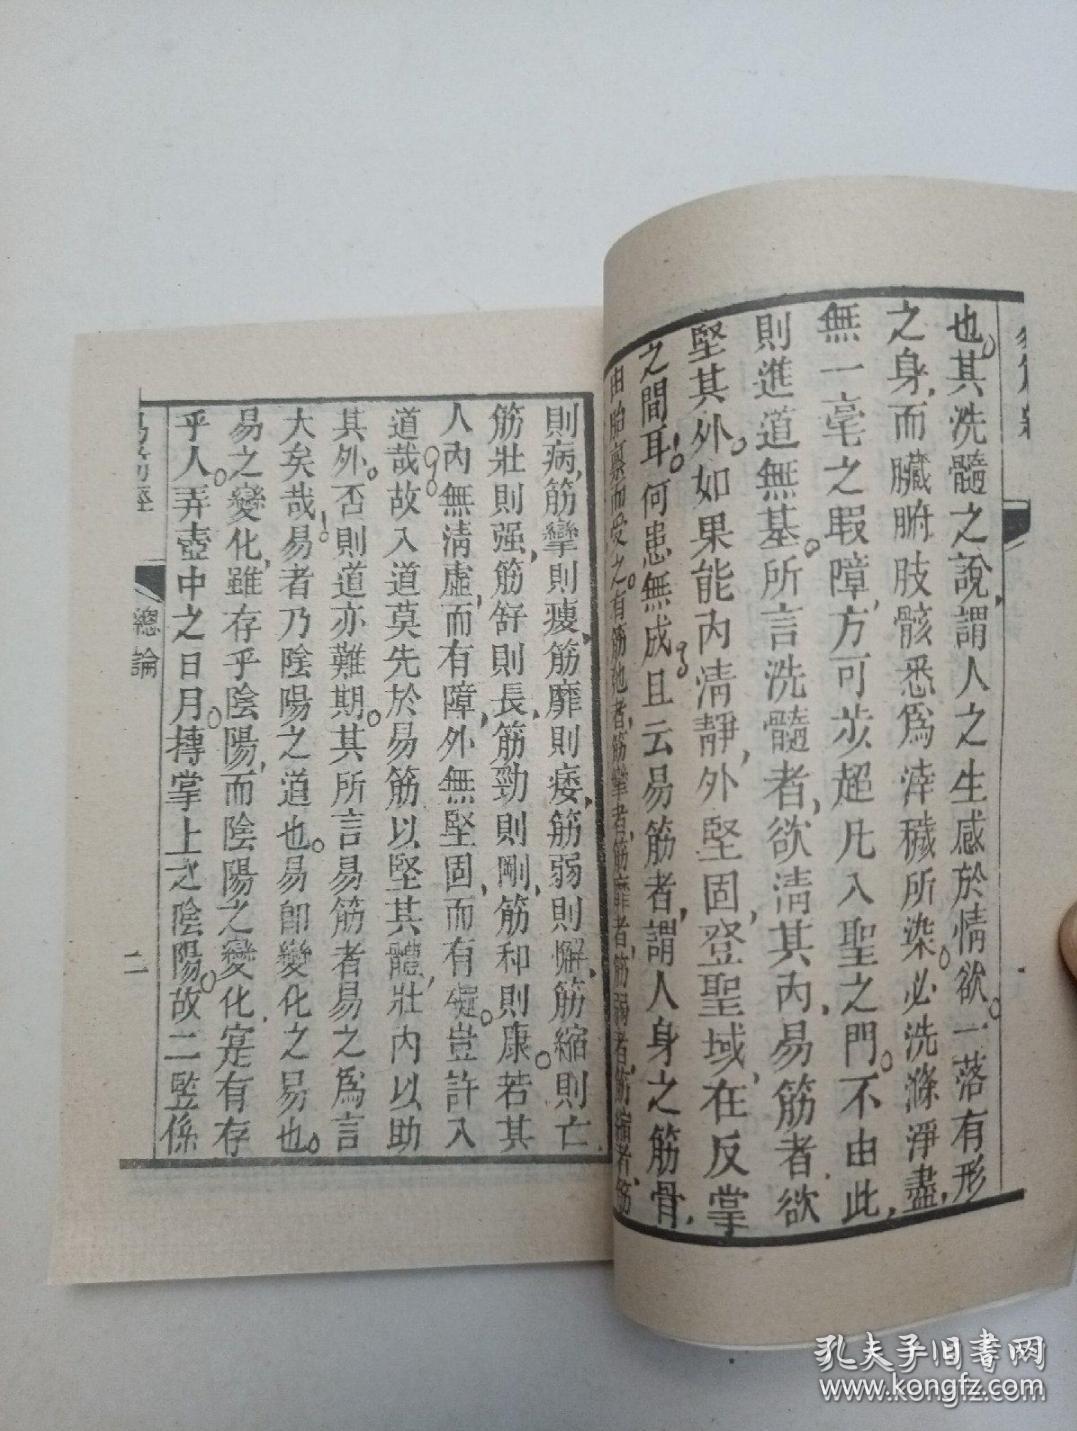 也。其洗髓之說,謂人之生感於情欲。一落有形
之身,而臟腑肢骸悉爲滓穢所染。必洗滌淨盡,
無一毫之瑕障,方可步超凡入聖之門。不由此,
則進道無基。所言洗髓者,欲淸其內,易筋者欲
堅其外。如果能內淸靜,外堅固,登聖域,在反掌
之間耳!何患無成?且云易筋者,謂人身之筋骨,
由胎禀而受之。有筋弛者,筋攣者,筋靡者,筋弱者,筋縮者,筋
則病,筋攣則瘦,筋靡則痿,筋弱則懈,筋縮則亡,
筋壯則强,筋舒則長,筋勁則剛,筋和則康。若其
人內無淸虛,而有障,外無堅固,而有礙。豈許入
道哉?故入道莫先於易筋以堅其體,壯內以助
其外。否則道亦難期。其所言易筋者易之爲言
大矣哉!易者乃陰陽之道也。易卽變化之易也。
易之變化,雖存乎陰陽,而陰陽之變化,寔有存
乎人。弄壺中之日月。搏掌上之陰陽。故二竪係
易筋經
總論
二
孔夫子旧书网
www.kongfz.com